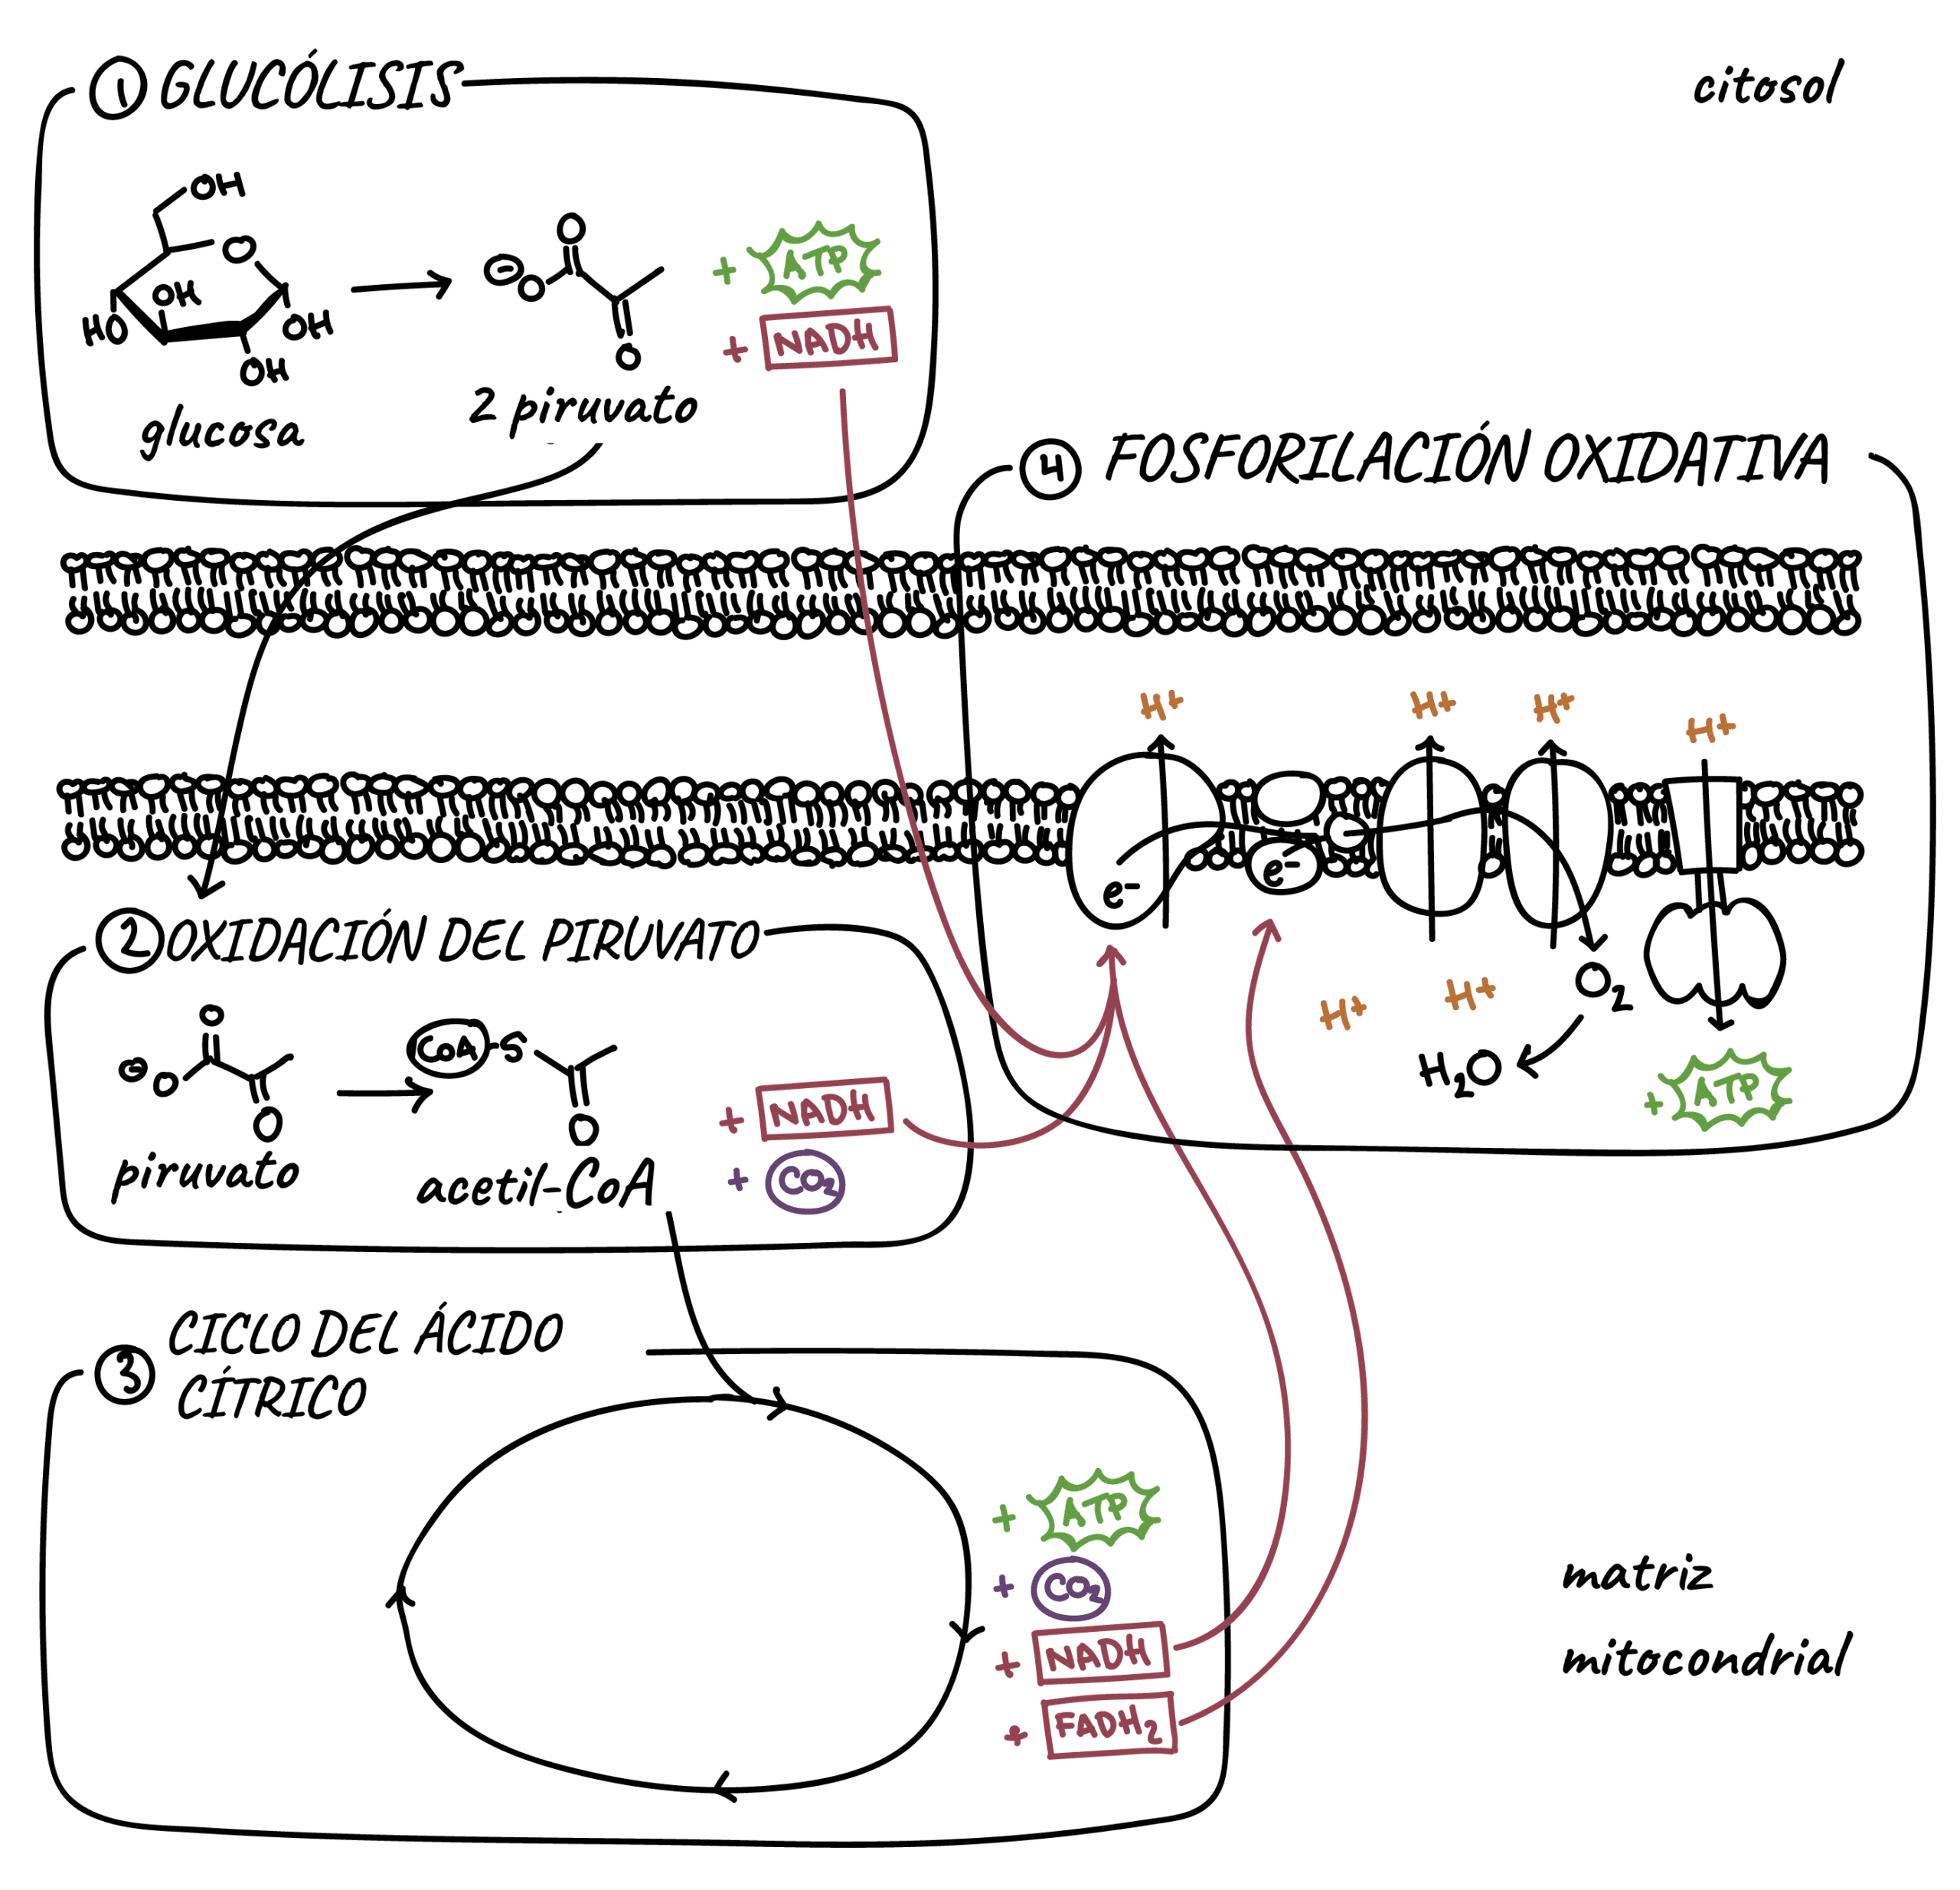 ① GLUCÓLISIS
citosol
OH
O
OH
HO
OH
OH
glucosa
O
⊖
O
O
2 piruvato
+ ATP
+ NADH
④ FOSFORILACIÓN OXIDATIVA
H+
H+
H+
H+
e-
e-
H+
H+
O2
H2O
+ ATP
② OXIDACIÓN DEL PIRUVATO
O
⊖
O
O
piruvato
CoA-S
O
acetil-CoA
+ NADH
+ CO2
③ CICLO DEL ÁCIDO
CÍTRICO
+ ATP
+ CO2
+ NADH
+ FADH2
matriz
mitocondrial